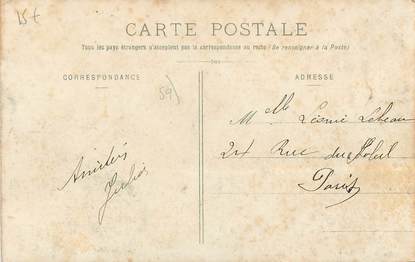 15€
CARTE POSTALE
Tous les pays étrangers n'acceptent pas la correspondance au recto (Se renseigner à la Poste)
CORRESPONDANCE
ADRESSE
59)
Mlle Léonie Lebeau
24 Rue du Soleil
Paris
Amitiés